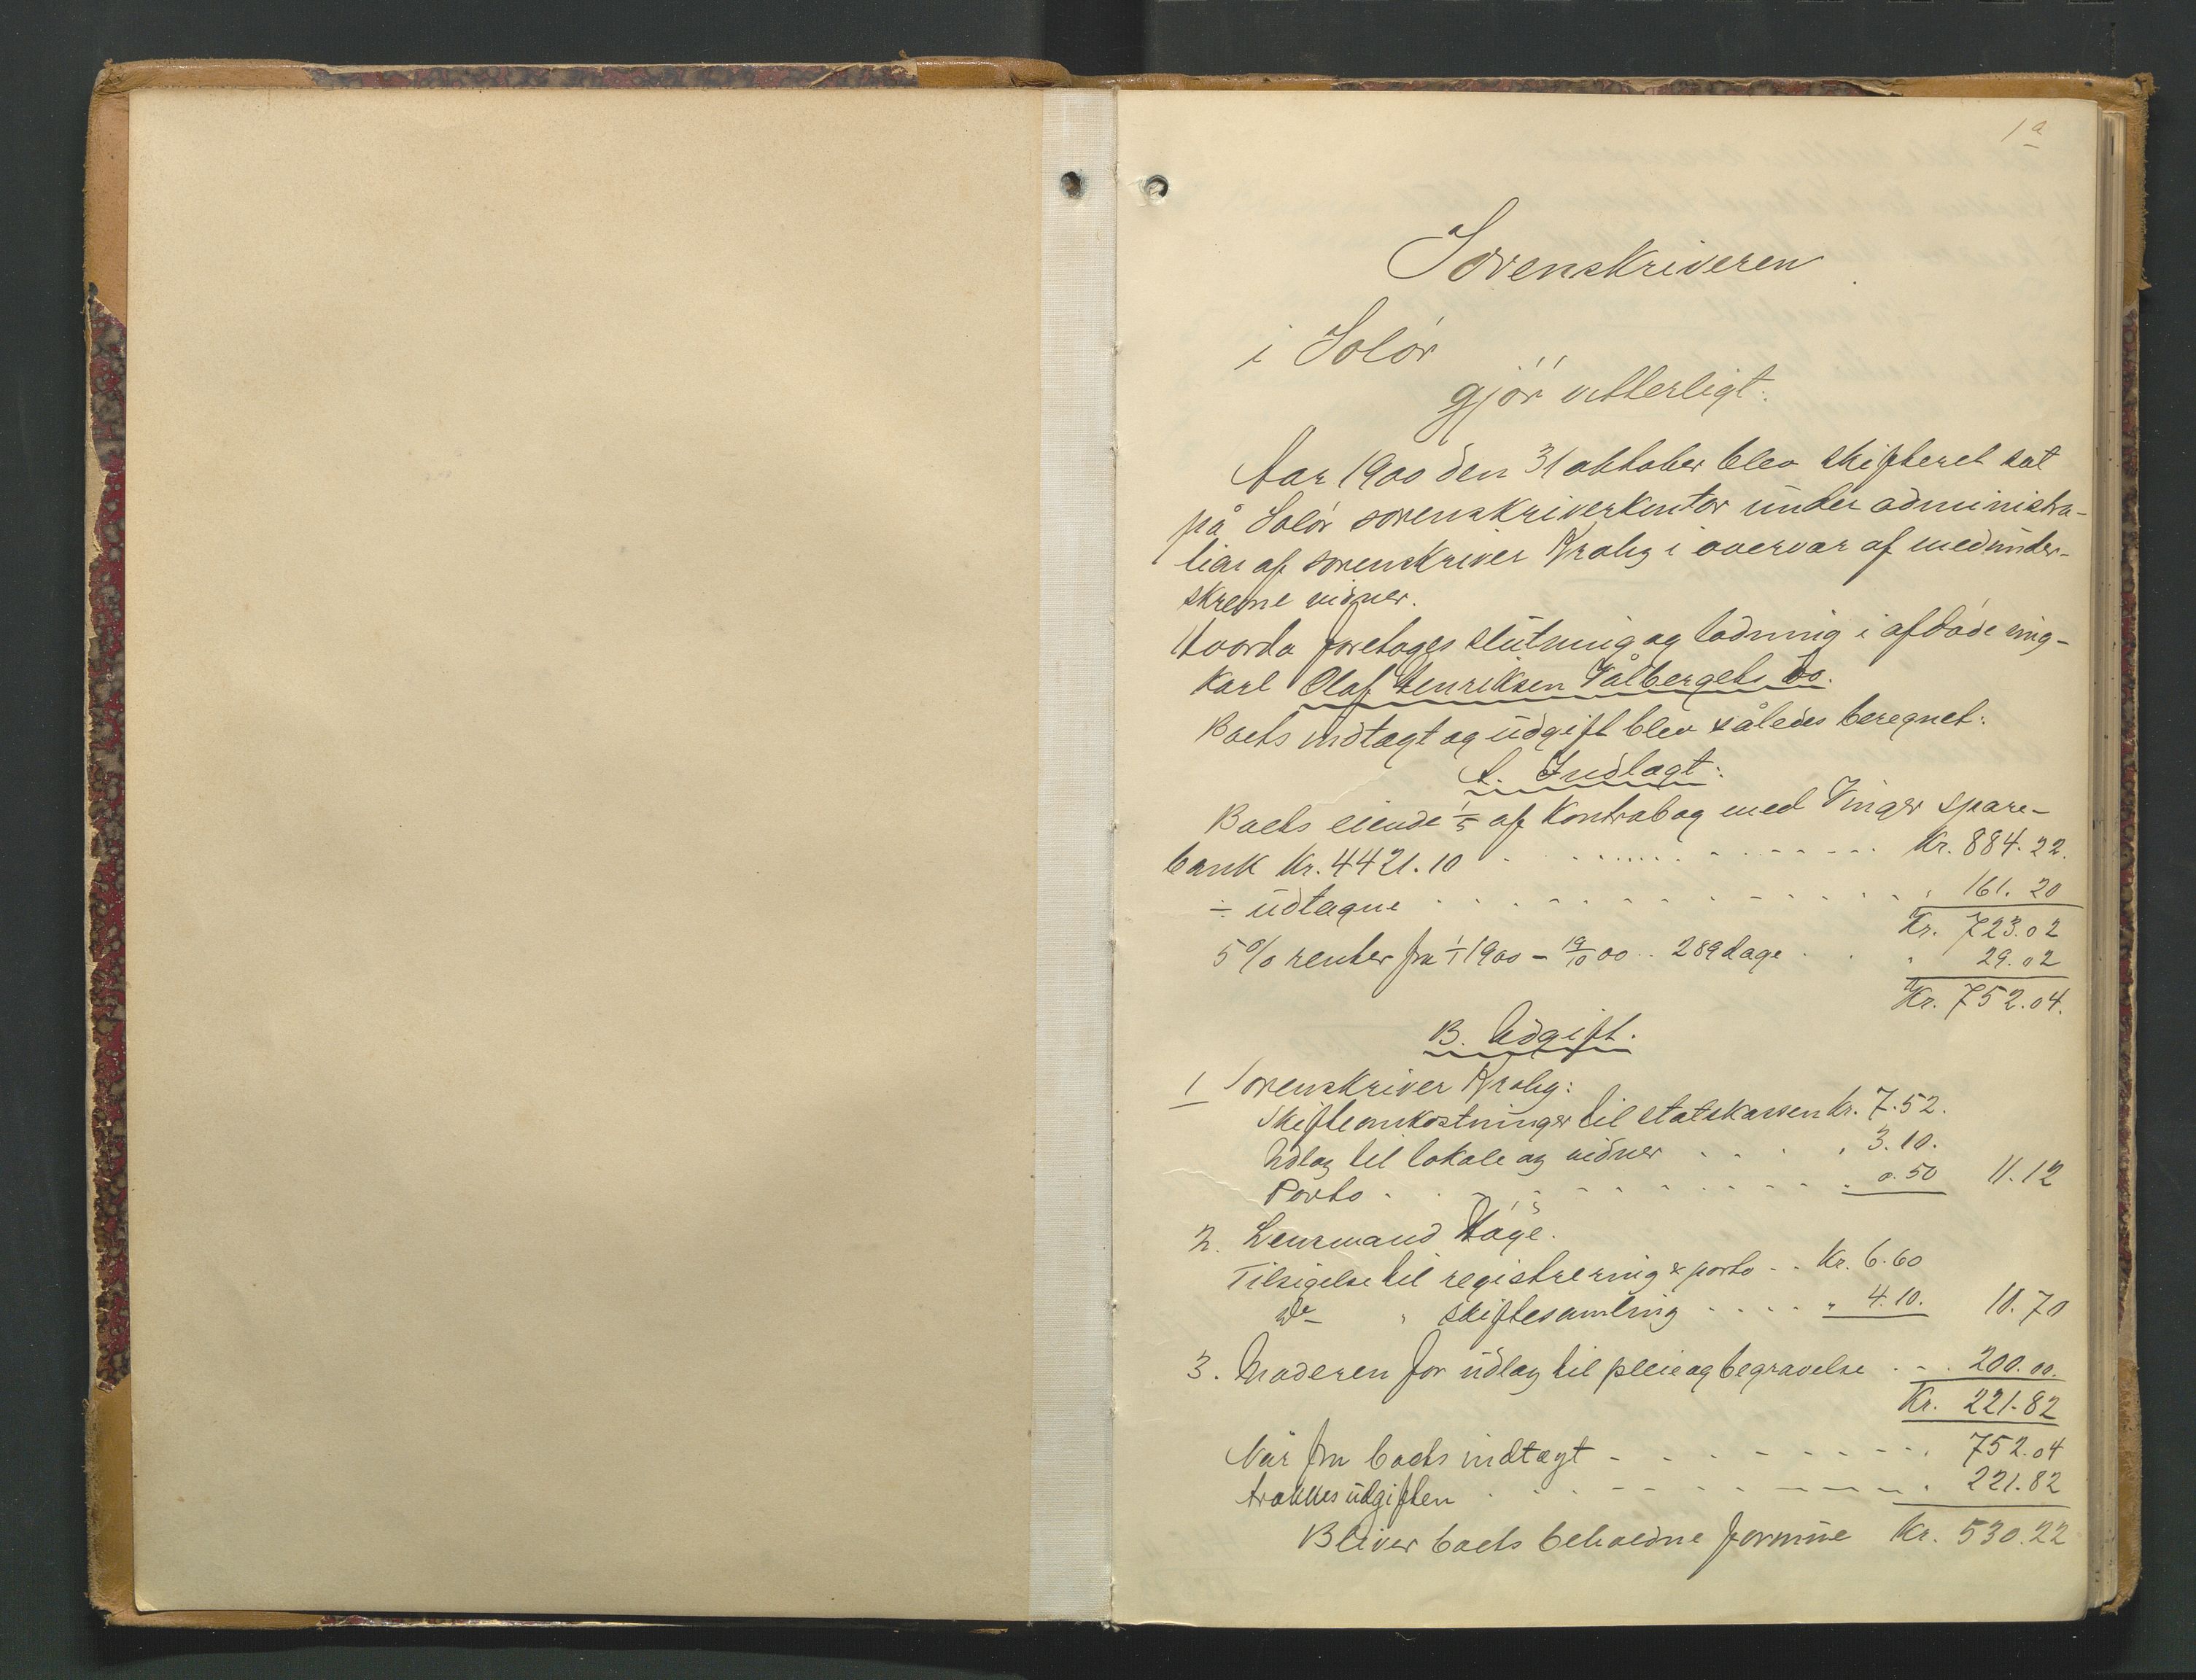 1a
Sorenskriveren
i Solør
gjør vitterligt:
Aar 1900 den 31 oktober blev skifteret sat
på Solør sorenskriverkontor under administra-
tion af sorenskriver Krohg i overvær af medunder-
skrevne vidner.
Hvorda foretoges slutning og lodning i afdøde ung-
karl Olaf Henriksen Vålbergets bo.
Boets indtægt og udgift blev således beregnet:
A. Indtægt:
Boets eiende 1/5 af Kontrabog med Vinger spare-
bank Kr. 4421.10 . . . . . . . . . Kr. 884.22.
÷ udtagne . . . . . . . . . . . . " 161.20
Kr. 723.02
5 % renter fra 1/1 1900 - 19/10 00 .. 289 dage . . " 29.02
Kr. 752.04.
B. Udgift.
1 Sorenskriver Krohg:
Skifteomkostninger til statskassen Kr. 7.52.
Udlæg til lokale og vidner . . . " 3.10.
Porto . . . . . . . . . . " 0.50 11.12
2. Lensmand Høge.
Tilsigelse til registrering & porto . . Kr. 6.60
do " skiftesamling . . . . " 4.10. 10.70
3. Moderen for udlæg til pleie og begravelse . . . 200.00.
Kr. 221.82
Når fra boets indtægt . . . . . . . . 752.04
trækkes udgiften . . . . . . . . . " 221.82
Bliver boets beholdne formue Kr. 530.22